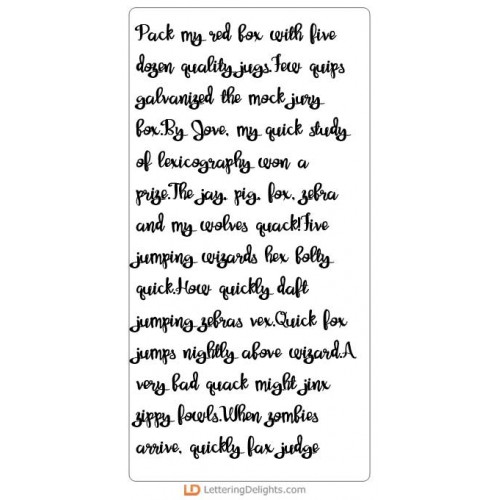 Pack my red box with five
dozen quality jugs.Few quips
galvanized the mock jury
box.By Jove, my quick study
of lexicography won a
prize.The jay, pig, fox, zebra
and my wolves quack!Five
jumping wizards hex bolty
quick.How quickly daft
jumping zebras vex.Quick fox
jumps nightly above wizard.A
very bad quack might jinx
zippy fowls.When zombies
arrive, quickly fax judge
LD LetteringDelights.com